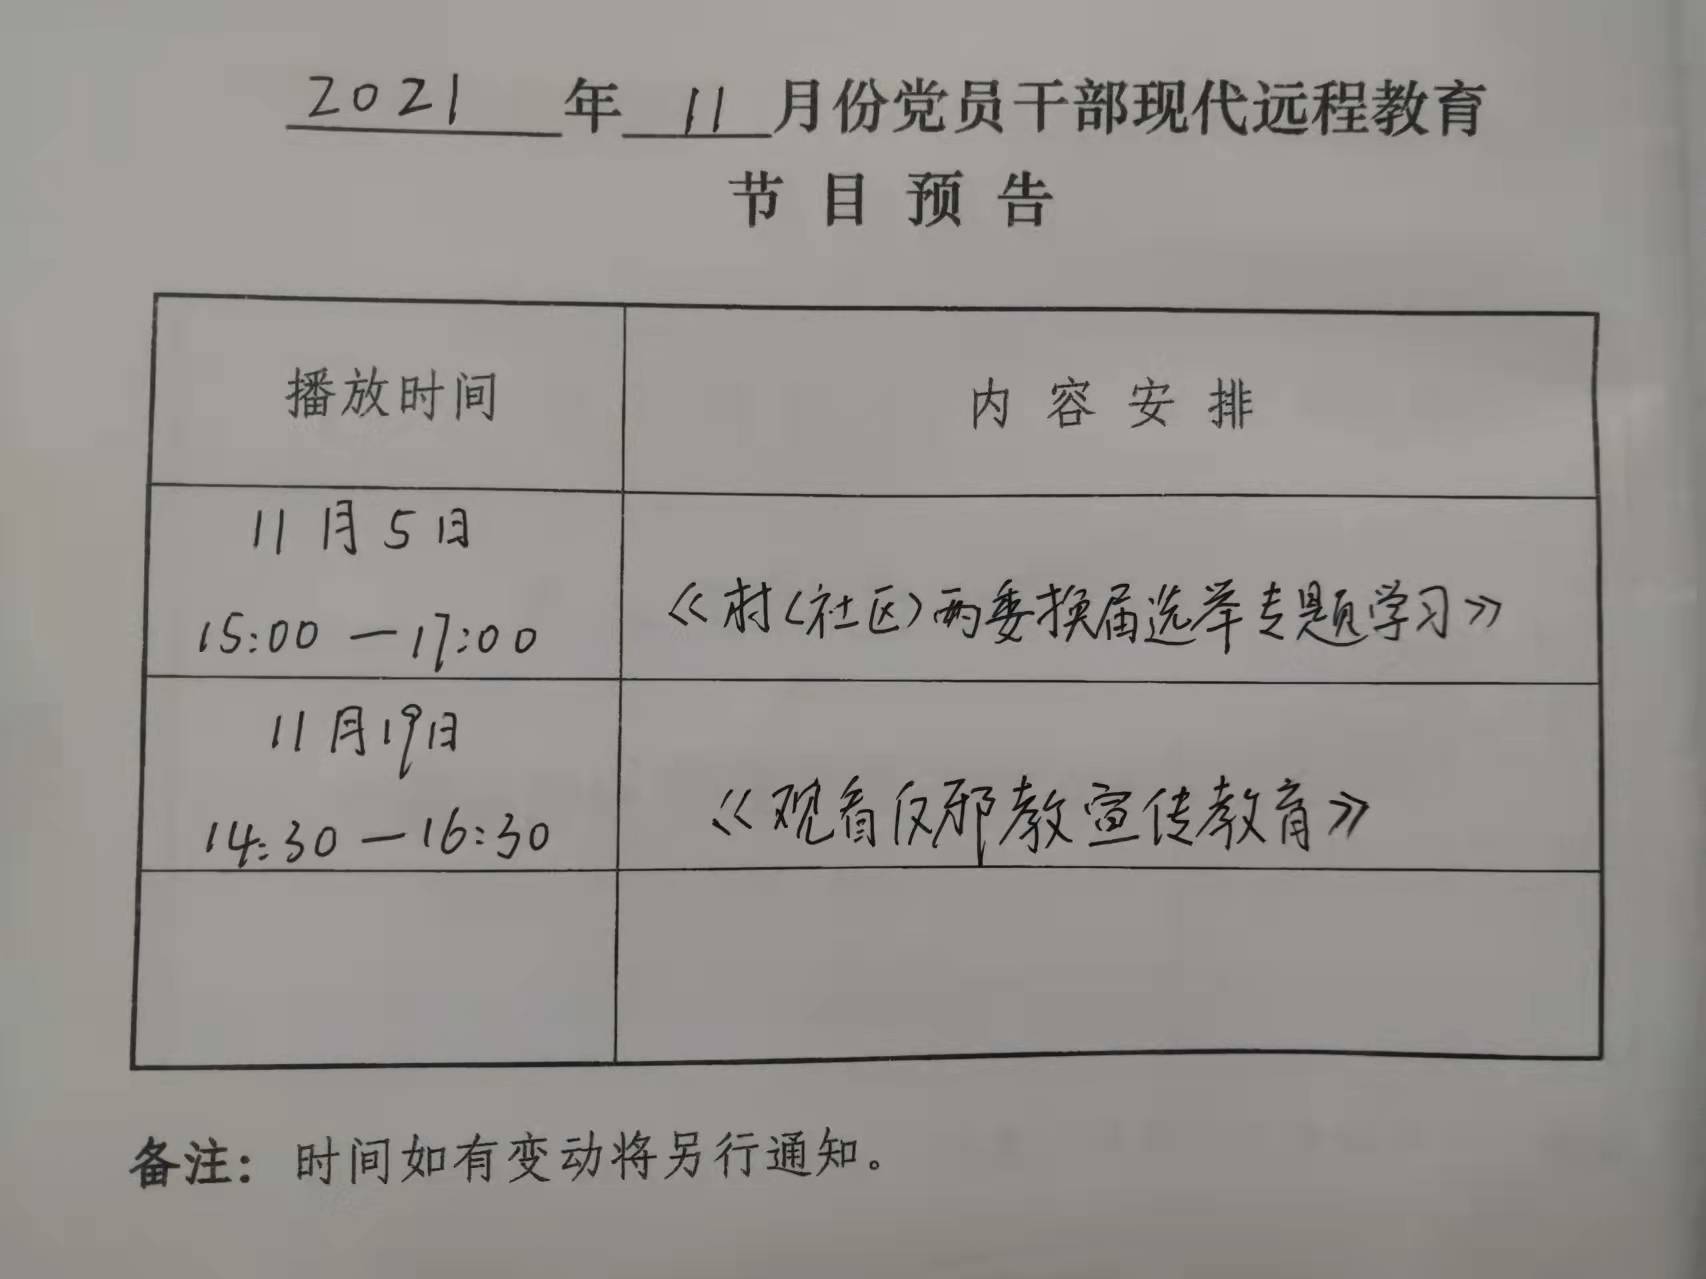 2021年11月份党员干部现代远程教育
节目预告
播放时间
内容安排
11月5日
15:00—17:00
《村(社区)两委换届选举专题学习》
11月19日
14:30—16:30
《观看反邪教宣传教育》
备注：时间如有变动将另行通知。